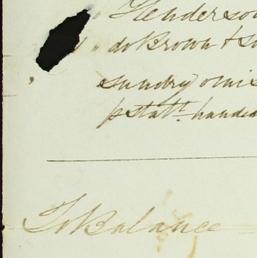 Henderso
do Brown & So
sundry omis
p statt. handed
To Balance